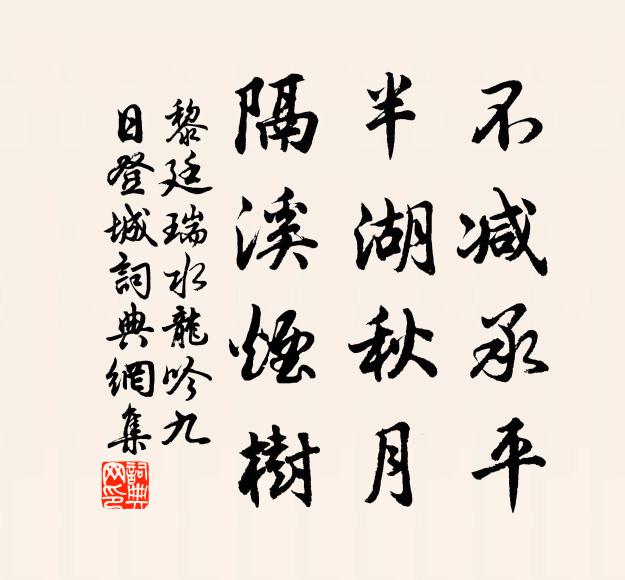 不减承平
半湖秋月
隔溪煙樹
黎廷瑞水龍吟九
日登城詞典網集
詞典网印